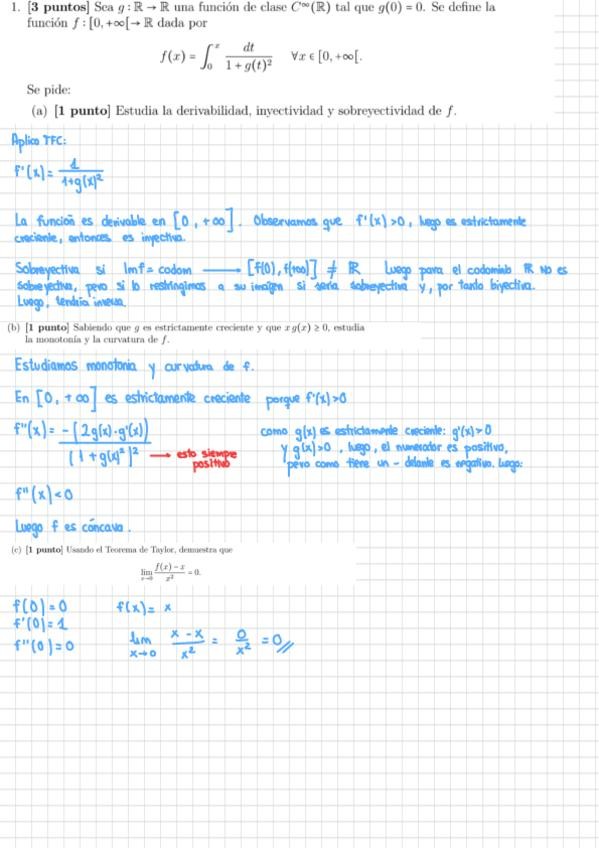 1. [3 puntos] Sea g : ℝ → ℝ una función de clase C^∞(ℝ) tal que g(0) = 0. Se define la
función f : [0, +∞[→ ℝ dada por
f(x) = ∫_0^x dt / (1 + g(t)²)   ∀x ∈ [0, +∞[.
Se pide:
(a) [1 punto] Estudia la derivabilidad, inyectividad y sobreyectividad de f.
Aplico TFC:
f'(x) = 1 / (1+g(x)²)
La función es derivable en [0, +∞]. Observamos que f'(x)>0, luego es estrictamente
creciente, entonces es inyectiva.
Sobreyectiva si Imf = codom ⟶ [f(0), f(+∞)] ≠ ℝ Luego para el codominio ℝ no es
sobreyectiva, pero si lo restringimos a su imagen si sería sobreyectiva y, por tanto biyectiva.
Luego, tendría inversa.
(b) [1 punto] Sabiendo que g es estrictamente creciente y que x g(x) ≥ 0, estudia
la monotonía y la curvatura de f.
Estudiamos monotonia y curvatura de f.
En [0, +∞] es estrictamente creciente porque f'(x)>0
f''(x) = -(2g(x)·g'(x)) / (1+g(x)²)² → esto siempre
positivo
como g(x) es estrictamente creciente: g'(x)>0
y g(x)>0, luego, el numerador es positivo,
pero como tiene un - delante es negativo. Luego:
f''(x)<0
Luego f es cóncava.
(c) [1 punto] Usando el Teorema de Taylor, demuestra que
lim_{x→0} (f(x) − x) / x² = 0.
f(0)=0   f(x)= x
f'(0)=1
f''(0)=0   lim_{x→0} (x - x) / x² = 0 / x² = 0//